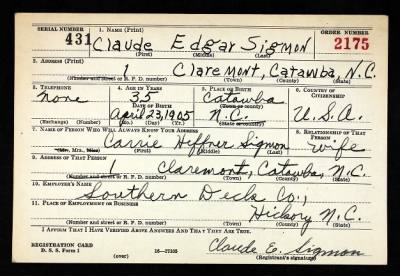 SERIAL NUMBER 1. NAME (Print) ORDER NUMBER
431 Claude Edgar Sigmon 2175
(First) (Middle) (Last)
2. ADDRESS (Print)
1 Claremont, Catawba, N.C.
(Number and street or R. F. D. number) (Town) (County) (State)
3. TELEPHONE 4. AGE IN YEARS 5. PLACE OF BIRTH 6. COUNTRY OF CITIZENSHIP
none 35 Catawba
DATE OF BIRTH (Town or county)
April 23, 1905 N.C. U.S.A.
(Exchange) (Number) (Mo.) (Day) (Yr.) (State or country)
7. NAME OF PERSON WHO WILL ALWAYS KNOW YOUR ADDRESS 8. RELATIONSHIP OF THAT PERSON
Carrie Heffner Sigmon wife
(Mr., Mrs., Miss) (First) (Middle) (Last)
9. ADDRESS OF THAT PERSON
1 Claremont, Catawba, N.C.
(Number and street or R. F. D. number) (Town) (County) (State)
10. EMPLOYER'S NAME
Southern Desk Co.,
11. PLACE OF EMPLOYMENT OR BUSINESS
Hickory N.C.
(Number and street or R. F. D. number) (Town) (County) (State)
I AFFIRM THAT I HAVE VERIFIED ABOVE ANSWERS AND THAT THEY ARE TRUE.
REGISTRATION CARD
D. S. S. Form 1 16-17105 Claude E. Sigmon
(over) (Registrant's signature)